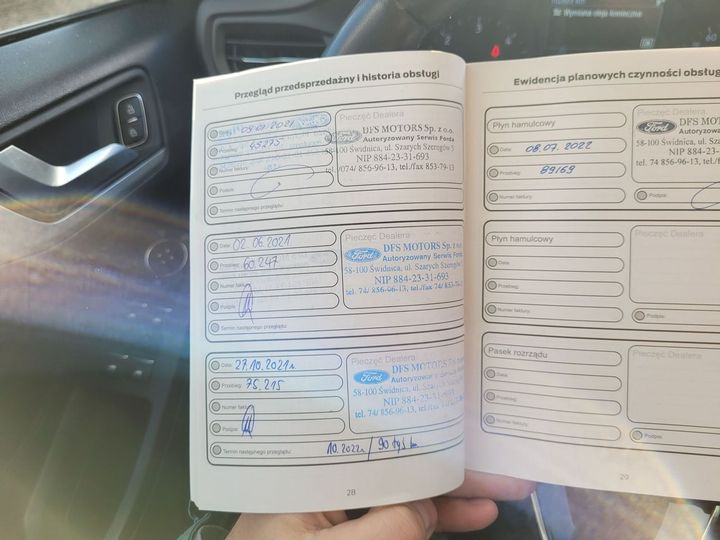 Wymiana oleju konieczna
OK
Przegląd przedsprzedażny i historia obsługi
Data:
Przebieg: 45275
Numer faktury:
Podpis:
Termin następnego przeglądu:
Pieczęć Dealera
Ford
DFS MOTORS Sp. z o.o.
Autoryzowany Serwis Forda
58-100 Świdnica, ul. Szarych Szeregów 5
NIP 884-23-31-693
tel./074/ 856-96-13, tel./fax 853-79-13
Data: 02.06.2021
Przebieg: 60.247
Numer faktury:
Podpis:
Termin następnego przeglądu:
Pieczęć Dealera
Ford
DFS MOTORS Sp. z o.o.
Autoryzowany Serwis Forda
58-100 Świdnica, ul. Szarych Szeregów
NIP 884-23-31-693
tel. 74/ 856-96-13, tel./fax 74/ 853-79-
Data: 27.10.2021r.
Przebieg: 75.215
Numer faktury:
Podpis:
Termin następnego przeglądu: 10.2022r / 90 tyś km
Pieczęć Dealera
Ford
DFS MOTORS Sp. z o.o.
Autoryzowany Serwis Forda
58-100 Świdnica, ul. Szarych Szeregów
NIP 884-23-31-693
tel. 74/ 856-96-13, tel./fax
28
Ewidencja planowych czynności obsług
Płyn hamulcowy
Data: 08.07.2022
Przebieg: 89169
Numer faktury:
Pieczęć Dealera
Ford
DFS MOT
Autoryzowany
58-100 Świdnica, ul. Szar
NIP 884-23-
tel. 74 856-96-13, tel./fa
Podpis:
Płyn hamulcowy
Data:
Przebieg:
Numer faktury:
Pieczęć Dealera
Podpis:
Pasek rozrządu
Data:
Przebieg:
Numer faktury:
Pieczęć Dealera
Podpis:
29